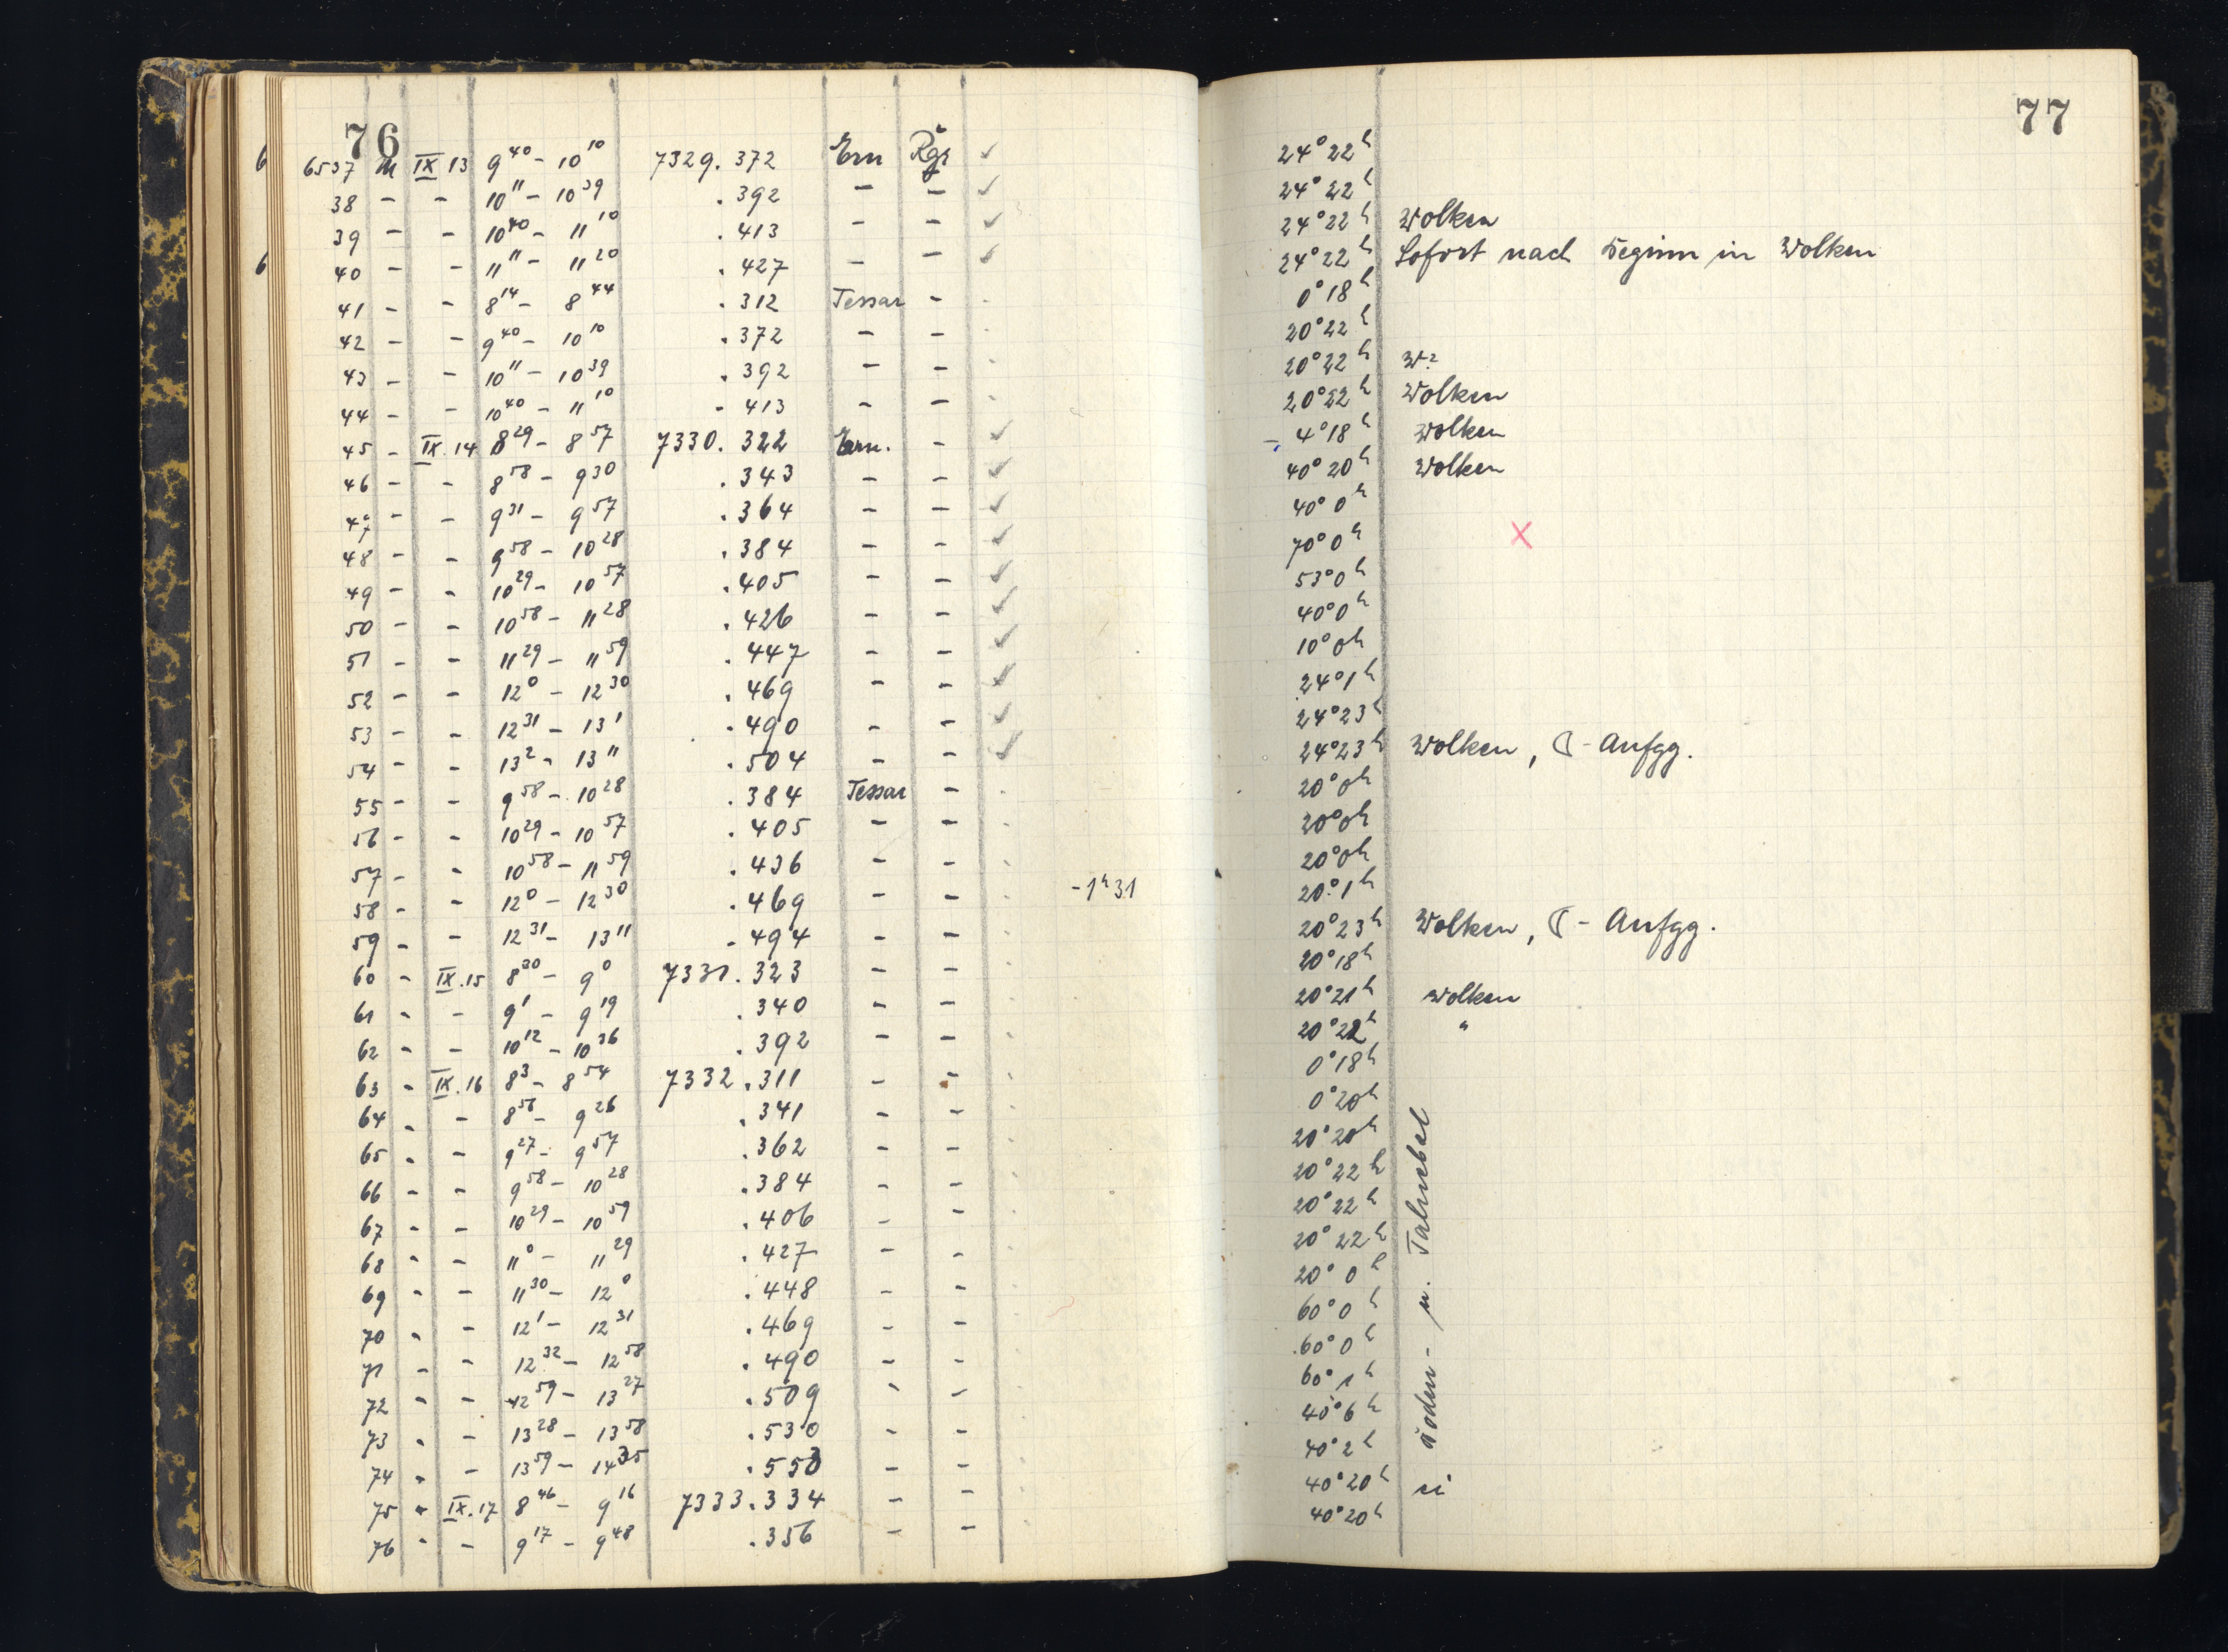 76
6537 M IX 13 9⁴⁰ – 10¹⁰ 7329.372 Ern Rgr ✓
38 – – 10¹¹ – 10³⁹ .392 – – ✓
39 – – 10⁴⁰ – 11¹⁰ .413 – – ✓
40 – – 11¹¹ – 11²⁰ .427 – – ✓
41 – – 8¹⁴ – 8⁴⁴ .312 Tessar –
42 – – 9⁴⁰ – 10¹⁰ .372 – –
43 – – 10¹¹ – 10³⁹ .392 – –
44 – – 10⁴⁰ – 11¹⁰ .413 – –
45 – IX.14 8²⁹ – 8⁵⁷ 7330.322 Ern. – ✓
46 – – 8⁵⁸ – 9³⁰ .343 – – ✓
47 – – 9³¹ – 9⁵⁷ .364 – – ✓
48 – – 9⁵⁸ – 10²⁸ .384 – – ✓
49 – – 10²⁹ – 10⁵⁷ .405 – – ✓
50 – – 10⁵⁸ – 11²⁸ .426 – – ✓
51 – – 11²⁹ – 11⁵⁹ .447 – – ✓
52 – – 12⁰ – 12³⁰ .469 – – ✓
53 – – 12³¹ – 13¹ .490 – – ✓
54 – – 13² – 13¹¹ .504 – – ✓
55 – – 9⁵⁸ – 10²⁸ .384 Tessar –
56 – – 10²⁹ – 10⁵⁷ .405 – –
57 – – 10⁵⁸ – 11⁵⁹ .436 – –
58 – – 12⁰ – 12³⁰ .469 – – -1ʰ31
59 – – 12³¹ – 13¹¹ .494 – –
60 – IX.15 8³⁰ – 9⁰ 7331.323 – –
61 – – 9¹ – 9¹⁹ .340 – –
62 – – 10¹² – 10³⁶ .392 – –
63 – IX.16 8³ – 8⁵⁴ 7332.311 – –
64 – – 8⁵⁶ – 9²⁶ .341 – –
65 – – 9²⁷ – 9⁵⁷ .362 – –
66 – – 9⁵⁸ – 10²⁸ .384 – –
67 – – 10²⁹ – 10⁵⁹ .406 – –
68 – – 11⁰ – 11²⁹ .427 – –
69 – – 11³⁰ – 12⁰ .448 – –
70 – – 12¹ – 12³¹ .469 – –
71 – – 12³² – 12⁵⁸ .490 – –
72 – – 12⁵⁹ – 13²⁷ .509 – –
73 – – 13²⁸ – 13⁵⁸ .530 – –
74 – – 13⁵⁹ – 14³⁵ .553 – –
75 – IX.17 8⁴⁶ – 9¹⁶ 7333.334 – –
76 – – 9¹⁷ – 9⁴⁸ .356 – –
77
24° 22ʰ
24° 22ʰ
24° 22ʰ Wolken
24° 22ʰ Sofort nach Beginn in Wolken
0° 18ʰ
20° 22ʰ
20° 22ʰ W?
20° 22ʰ Wolken
– 4° 18ʰ Wolken
40° 20ʰ Wolken
40° 0ʰ
70° 0ʰ X
53° 0ʰ
40° 0ʰ
10° 0ʰ
24° 1ʰ
24° 23ʰ
24° 23ʰ Wolken, ☾-Aufgg.
20° 0ʰ
20° 0ʰ
20° 0ʰ
20° 1ʰ
20° 23ʰ Wolken, ☾-Aufgg.
20° 18ʰ
20° 21ʰ Wolken
20° 22ʰ "
0° 18ʰ
0° 20ʰ
20° 20ʰ
20° 22ʰ
20° 22ʰ
20° 22ʰ
20° 0ʰ
60° 0ʰ
60° 0ʰ
60° 1ʰ
40° 6ʰ
40° 2ʰ
40° 20ʰ
40° 20ʰ
Boden- u. Talnebel